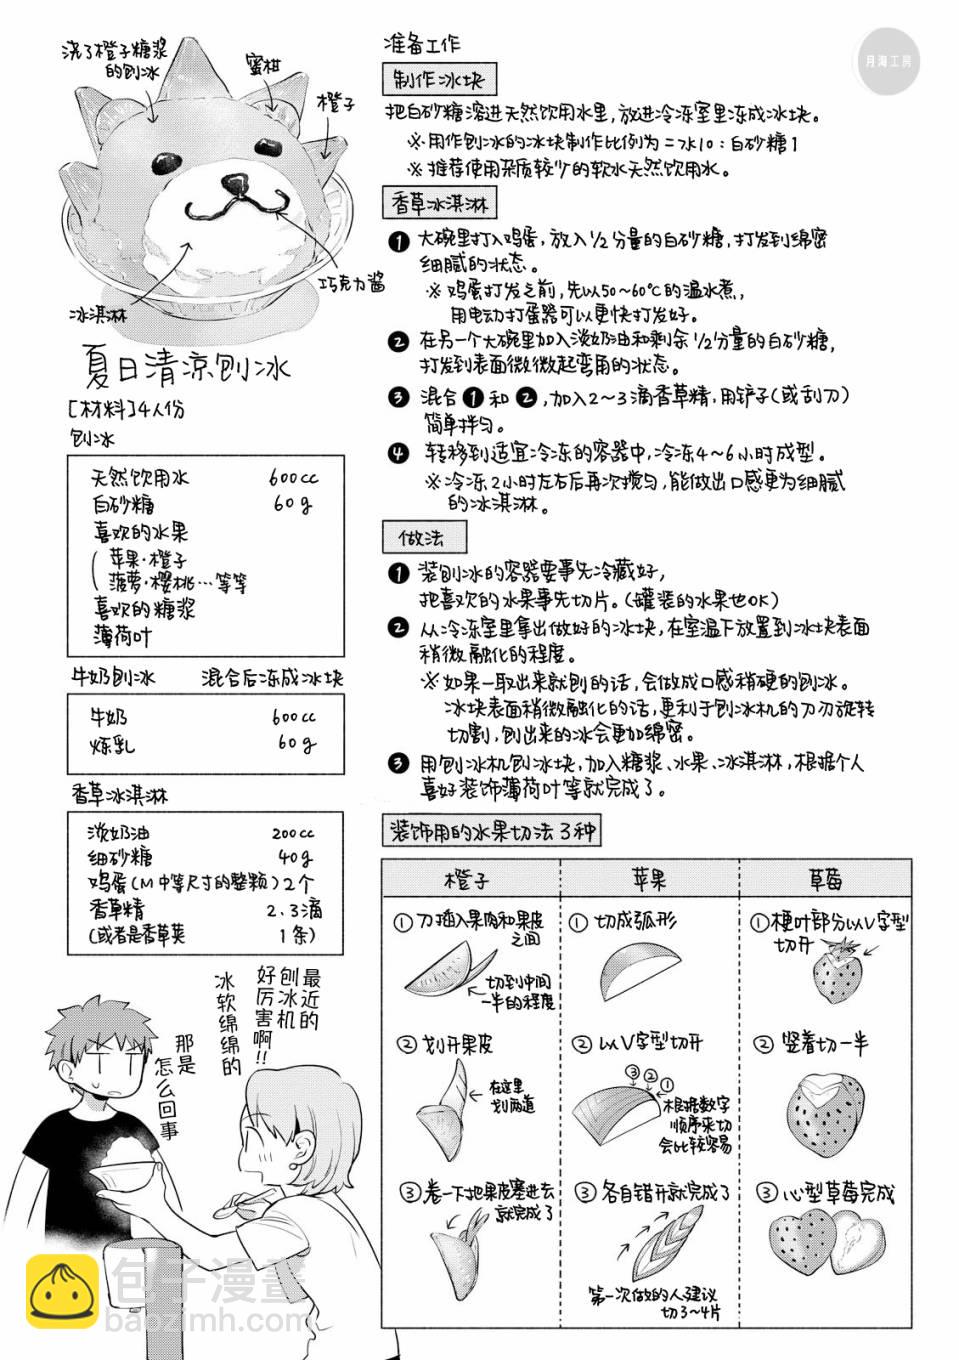 月海工房
浇了橙子糖浆
的刨冰
蜜柑
橙子
巧克力酱
冰淇淋
夏日清凉刨冰
[材料]4人份
刨冰
天然饮用水 600cc
白砂糖 60g
喜欢的水果
(苹果·橙子
菠萝·樱桃…等等
喜欢的糖浆
薄荷叶
牛奶刨冰 混合后冻成冰块
牛奶 600cc
炼乳 60g
香草冰淇淋
淡奶油 200cc
细砂糖 40g
鸡蛋(M中等尺寸的整颗)2个
香草精 2.3滴
(或者是香草荚 1条)
准备工作
制作冰块
把白砂糖溶进天然饮用水里,放进冷冻室里冻成冰块。
※用作刨冰的冰块制作比例为=水10:白砂糖1
※推荐使用杂质较少的软水天然饮用水。
香草冰淇淋
❶大碗里打入鸡蛋,放入1/2分量的白砂糖,打发到绵密
细腻的状态。
※鸡蛋打发之前,先以50~60℃的温水煮,
用电动打蛋器可以更快打发好。
❷在另一个大碗里加入淡奶油和剩余1/2分量的白砂糖,
打发到表面微微起弯角的状态。
❸混合❶和❷,加入2~3滴香草精,用铲子(或刮刀)
简单拌匀。
❹转移到适宜冷冻的容器中,冷冻4~6小时成型。
※冷冻2小时左右后再次搅匀,能做出口感更为细腻
的冰淇淋。
做法
❶装刨冰的容器要事先冷藏好,
把喜欢的水果事先切片。(罐装的水果也OK)
❷从冷冻室里拿出做好的冰块,在室温下放置到冰块表面
稍微融化的程度。
※如果一取出来就刨的话,会做成口感稍硬的刨冰。
冰块表面稍微融化的话,更利于刨冰机的刀刃旋转
切割,刨出来的冰会更加绵密。
❸用刨冰机刨冰块,加入糖浆、水果、冰淇淋,根据个人
喜好装饰薄荷叶等就完成了。
装饰用的水果切法3种
橙子
①刀插入果肉和果皮
之间
切到中间
一半的程度
②划开果皮
在这里
划两道
③卷一下把果皮塞进去
就完成了
苹果
①切成弧形
②以V字型切开
③②①
根据数字
顺序来切
会比较容易
③各自错开就完成了
第一次做的人建议
切3~4片
草莓
①梗叶部分以V字型
切开
②竖着切一半
③心型草莓完成
最近的
刨冰机
好厉害啊!!
冰软绵绵的
那是
怎么回事
包子漫畫
baozimh.com